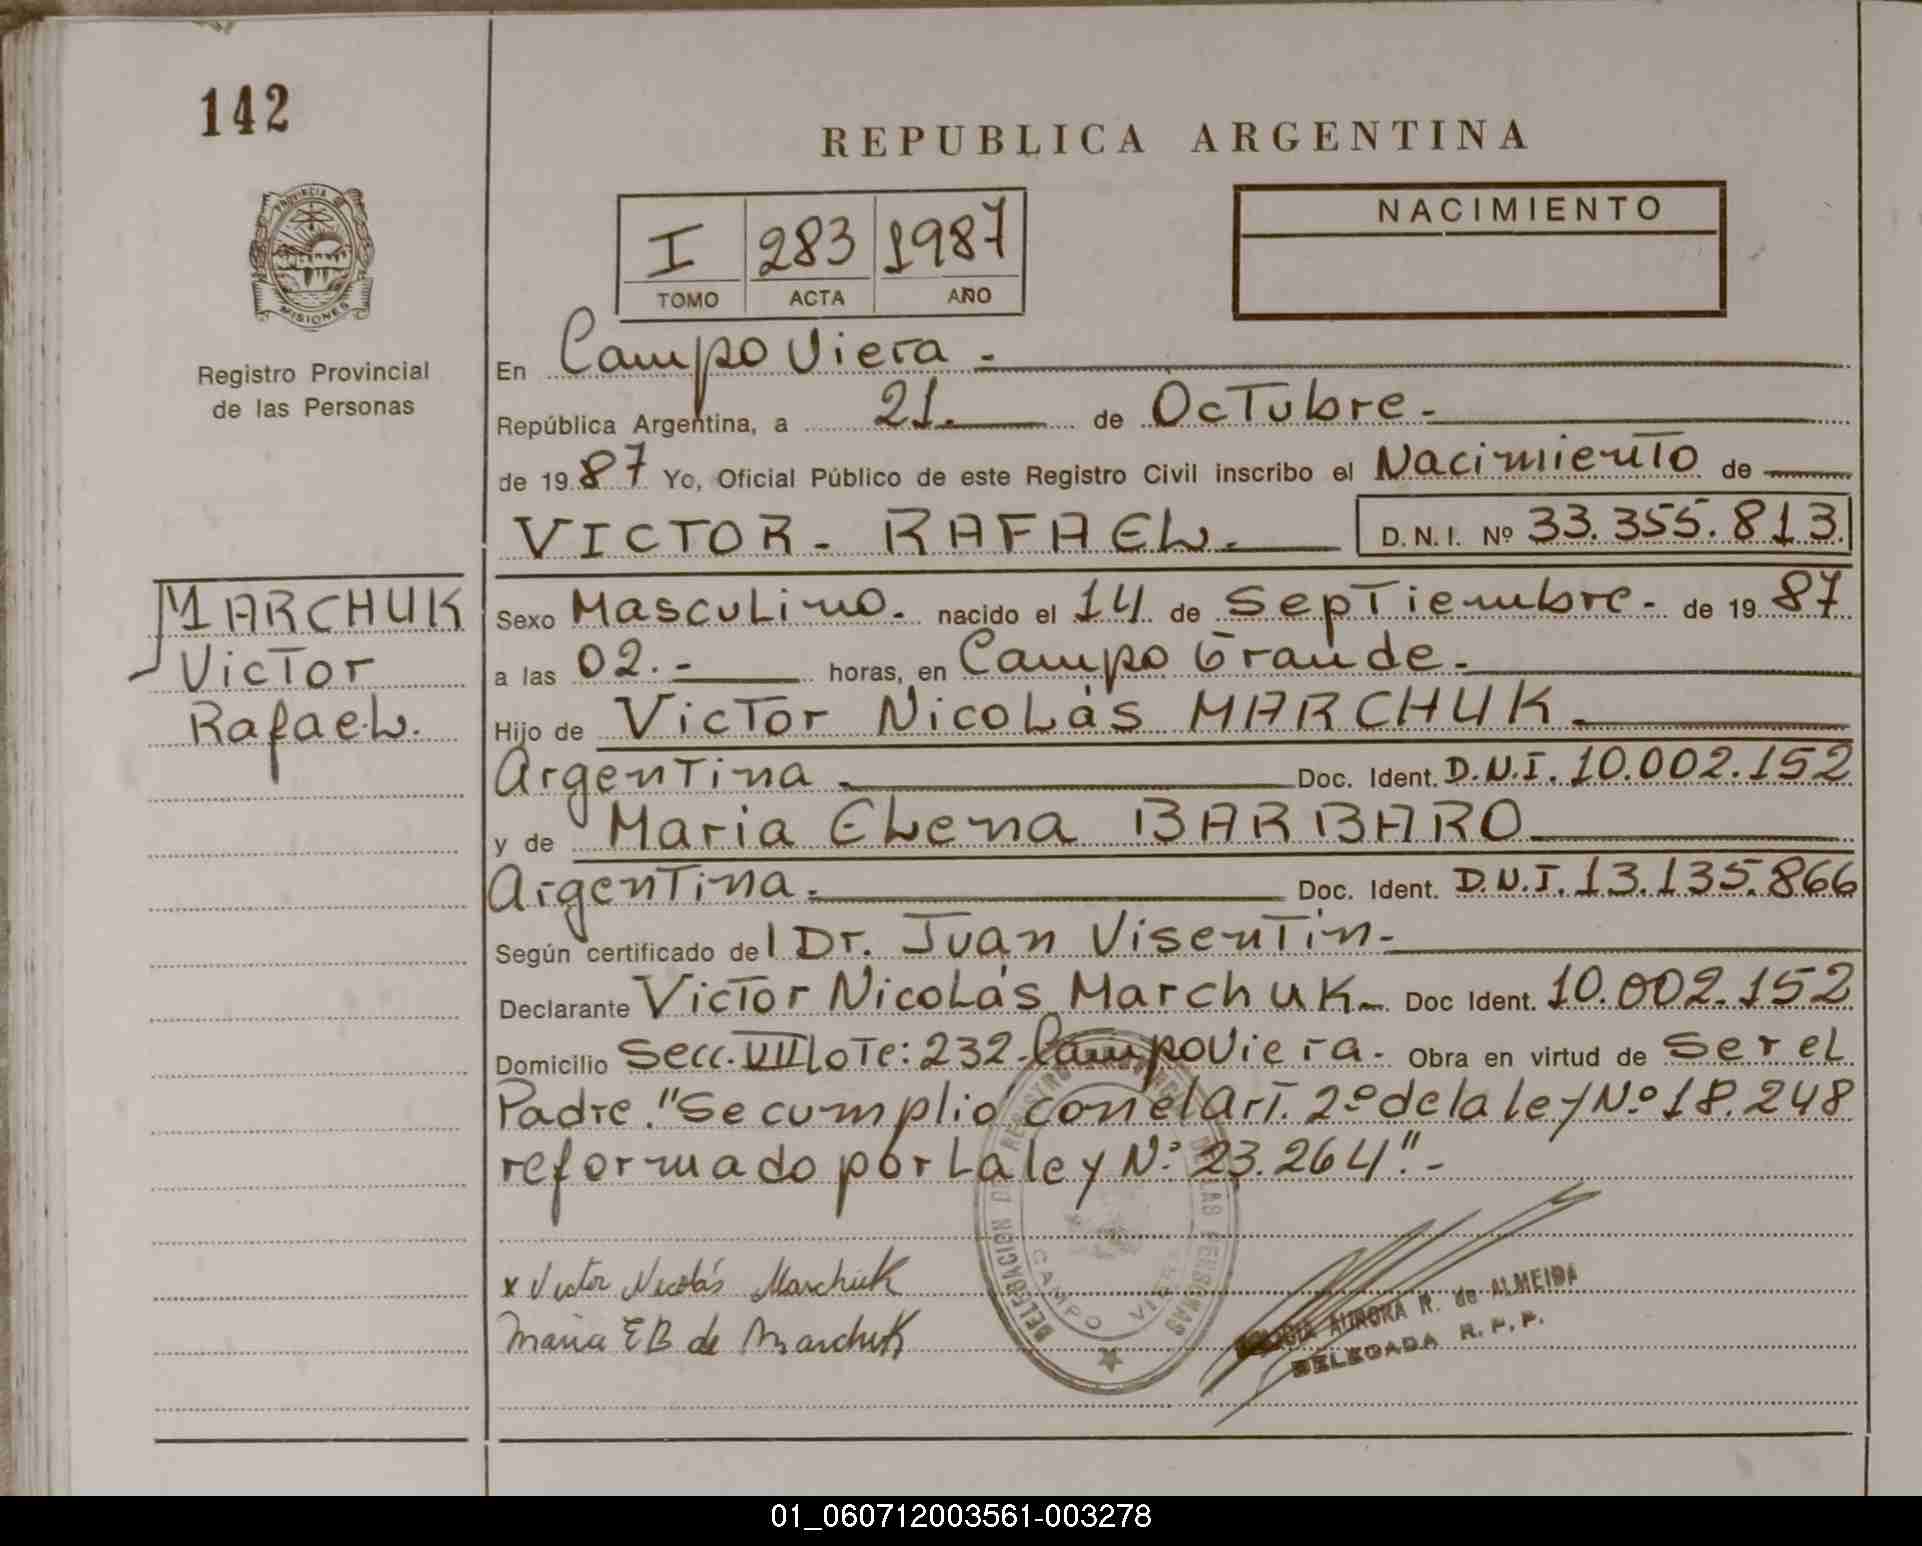 142
REPUBLICA ARGENTINA
PROVINCIA DE
MISIONES
Registro Provincial
de las Personas
I 283 1987
TOMO ACTA AÑO
NACIMIENTO
En Campo Viera -
República Argentina, a 21. de Octubre -
de 1987 Yo, Oficial Público de este Registro Civil inscribo el Nacimiento de
VICTOR - RAFAEL. D.N.I. Nº 33.355.813.
MARCHUK
Victor
Rafael.
Sexo Masculino. nacido el 14 de Septiembre - de 1987
a las 02. - horas, en Campo Grande -
Hijo de Victor Nicolás MARCHUK
Argentina Doc. Ident. D.N.I. 10.002.152
y de Maria Elena BARBARO
Argentina. Doc. Ident. D.N.I. 13.135.866
Según certificado del Dr. Juan Visentin -
Declarante Victor Nicolás Marchuk - Doc Ident. 10.002.152
Domicilio Secc. VIII Lote: 232 - Campo Viera - Obra en virtud de Ser el
Padre. "Se cumplio con el Art. 2º de la ley Nº 18.248
reformado por la ley Nº 23.264". -
x Victor Nicolás Marchuk
Maria E B de Marchuk
DELEGACION DE REGISTRO DE LAS PERSONAS
CAMPO VIERA
AURORA R. de ALMEIDA
DELEGADA R. P. P.
01_060712003561-003278